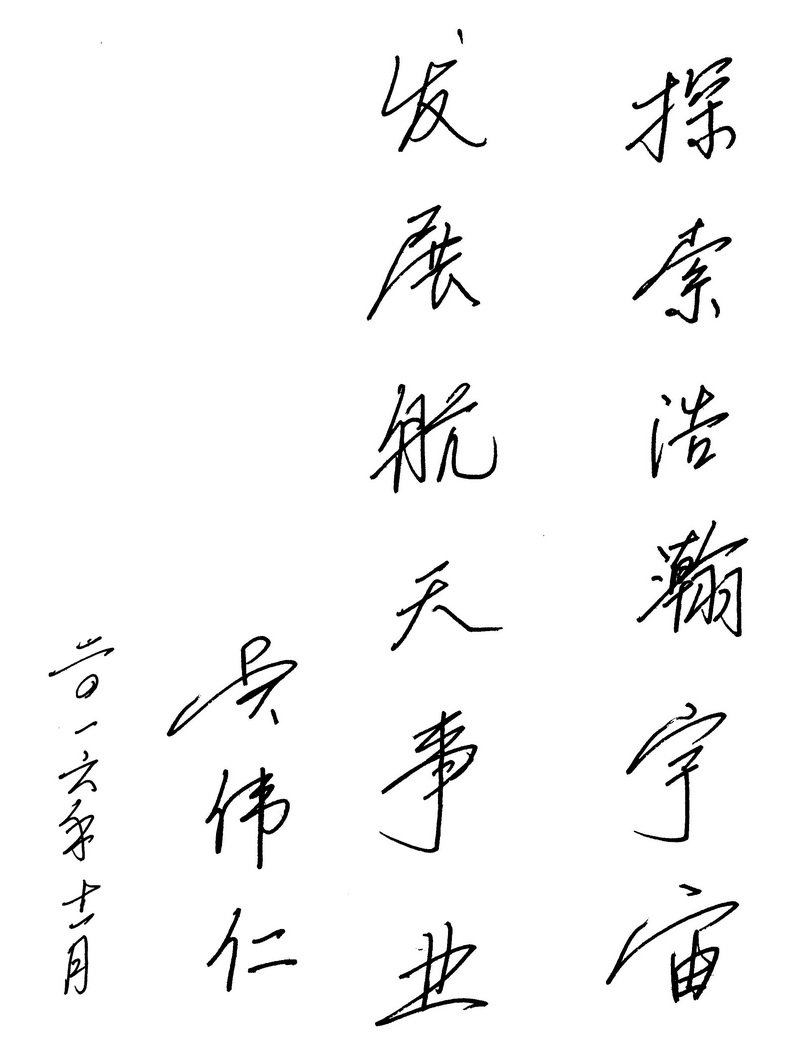 探索浩瀚宇宙
发展航天事业
吴伟仁
二〇一六年十一月